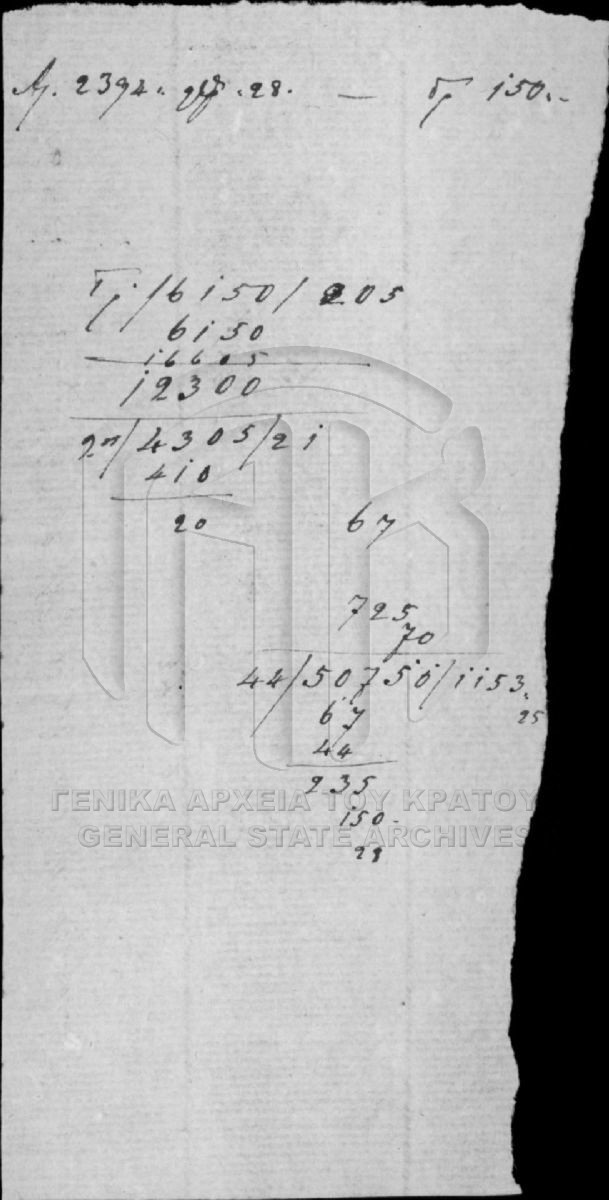 2394. 28. — Γρ 150..
Γρ. / 6150 / 205
6150
16605
12300
2π / 4305 / 21
410
20
67
725
70
44 / 50750 / 1153.
25
67
44
235
150-
28
ΓΕΝΙΚΑ ΑΡΧΕΙΑ ΤΟΥ ΚΡΑΤΟΥ
GENERAL STATE ARCHIVES